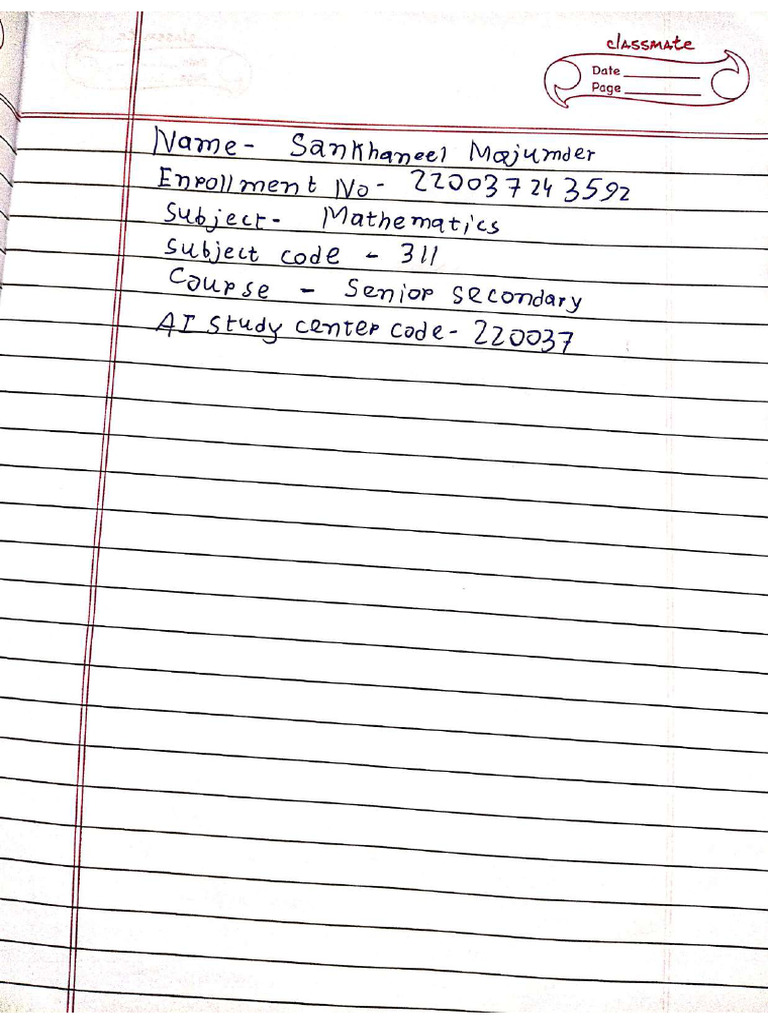 classmate
Date
Page
Name- Sankhaneel Majumder
Enrollment No- 220037243592
Subject- Mathematics
Subject code - 311
Course - Senior secondary
AI study center code- 220037